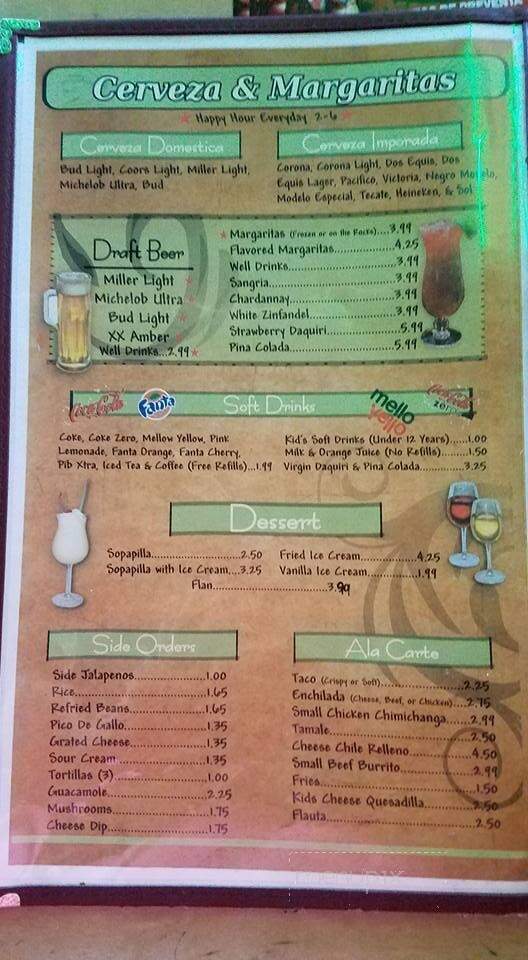 Cerveza & Margaritas
Happy Hour Everyday 2-6
Cerveza Domestica
Bud Light, Coors Light, Miller Light,
Michelob Ultra, Bud
Cerveza Imporada
Corona, Corona Light, Dos Equis, Dos
Equis Lager, Pacifico, Victoria, Negro Modelo,
Modelo Especial, Tecate, Heineken, & Sol
Draft Beer
Miller Light
Michelob Ultra
Bud Light
XX Amber
Well Drinks...2.99
Margaritas (Frozen or on the Rocks)....3.99
Flavored Margaritas....................4.25
Well Drinks............................3.99
Sangria................................3.99
Chardannay.............................3.99
White Zinfandel........................3.99
Strawberry Daquiri.....................5.99
Pina Colada............................5.99
Coca-Cola Fanta Soft Drinks mello yello Coca-Cola zero
Coke, Coke Zero, Mellow Yellow, Pink
Lemonade, Fanta Orange, Fanta Cherry,
Pib Xtra, Iced Tea & Coffee (Free Refills)...1.99
Kid's Soft Drinks (Under 12 Years)......1.00
Milk & Orange Juice (No Refills).........1.50
Virgin Daquiri & Pina Colada.............3.25
Dessert
Sopapilla......................2.50
Sopapilla with Ice Cream...3.25
Fried Ice Cream................4.25
Vanilla Ice Cream..............1.99
Flan...........................3.99
Side Orders
Side Jalapenos.................1.00
Rice...........................1.65
Refried Beans..................1.65
Pico De Gallo..................1.35
Grated Cheese..................1.35
Sour Cream.....................1.35
Tortillas (3)..................1.00
Guacamole......................2.25
Mushrooms......................1.75
Cheese Dip.....................1.75
Ala Carte
Taco (Crispy or Soft)....................2.25
Enchilada (Cheese, Beef, or Chicken)....2.75
Small Chicken Chimichanga......2.99
Tamale.........................2.50
Cheese Chile Relleno...........4.50
Small Beef Burrito.............2.99
Fries..........................1.50
Kids Cheese Quesadilla.........2.50
Flauta.........................2.50